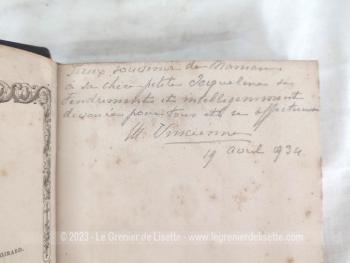 Pieux souvenir de Maman
à sa chère petite Jacqueline si
tendrement et intelligemment
dévouée pour tous et si affectueuse
M. Vincienne
19 avril 934
GIRARD.
© 2023 - Le Grenier de Lisette - www.legrenierdelisette.com